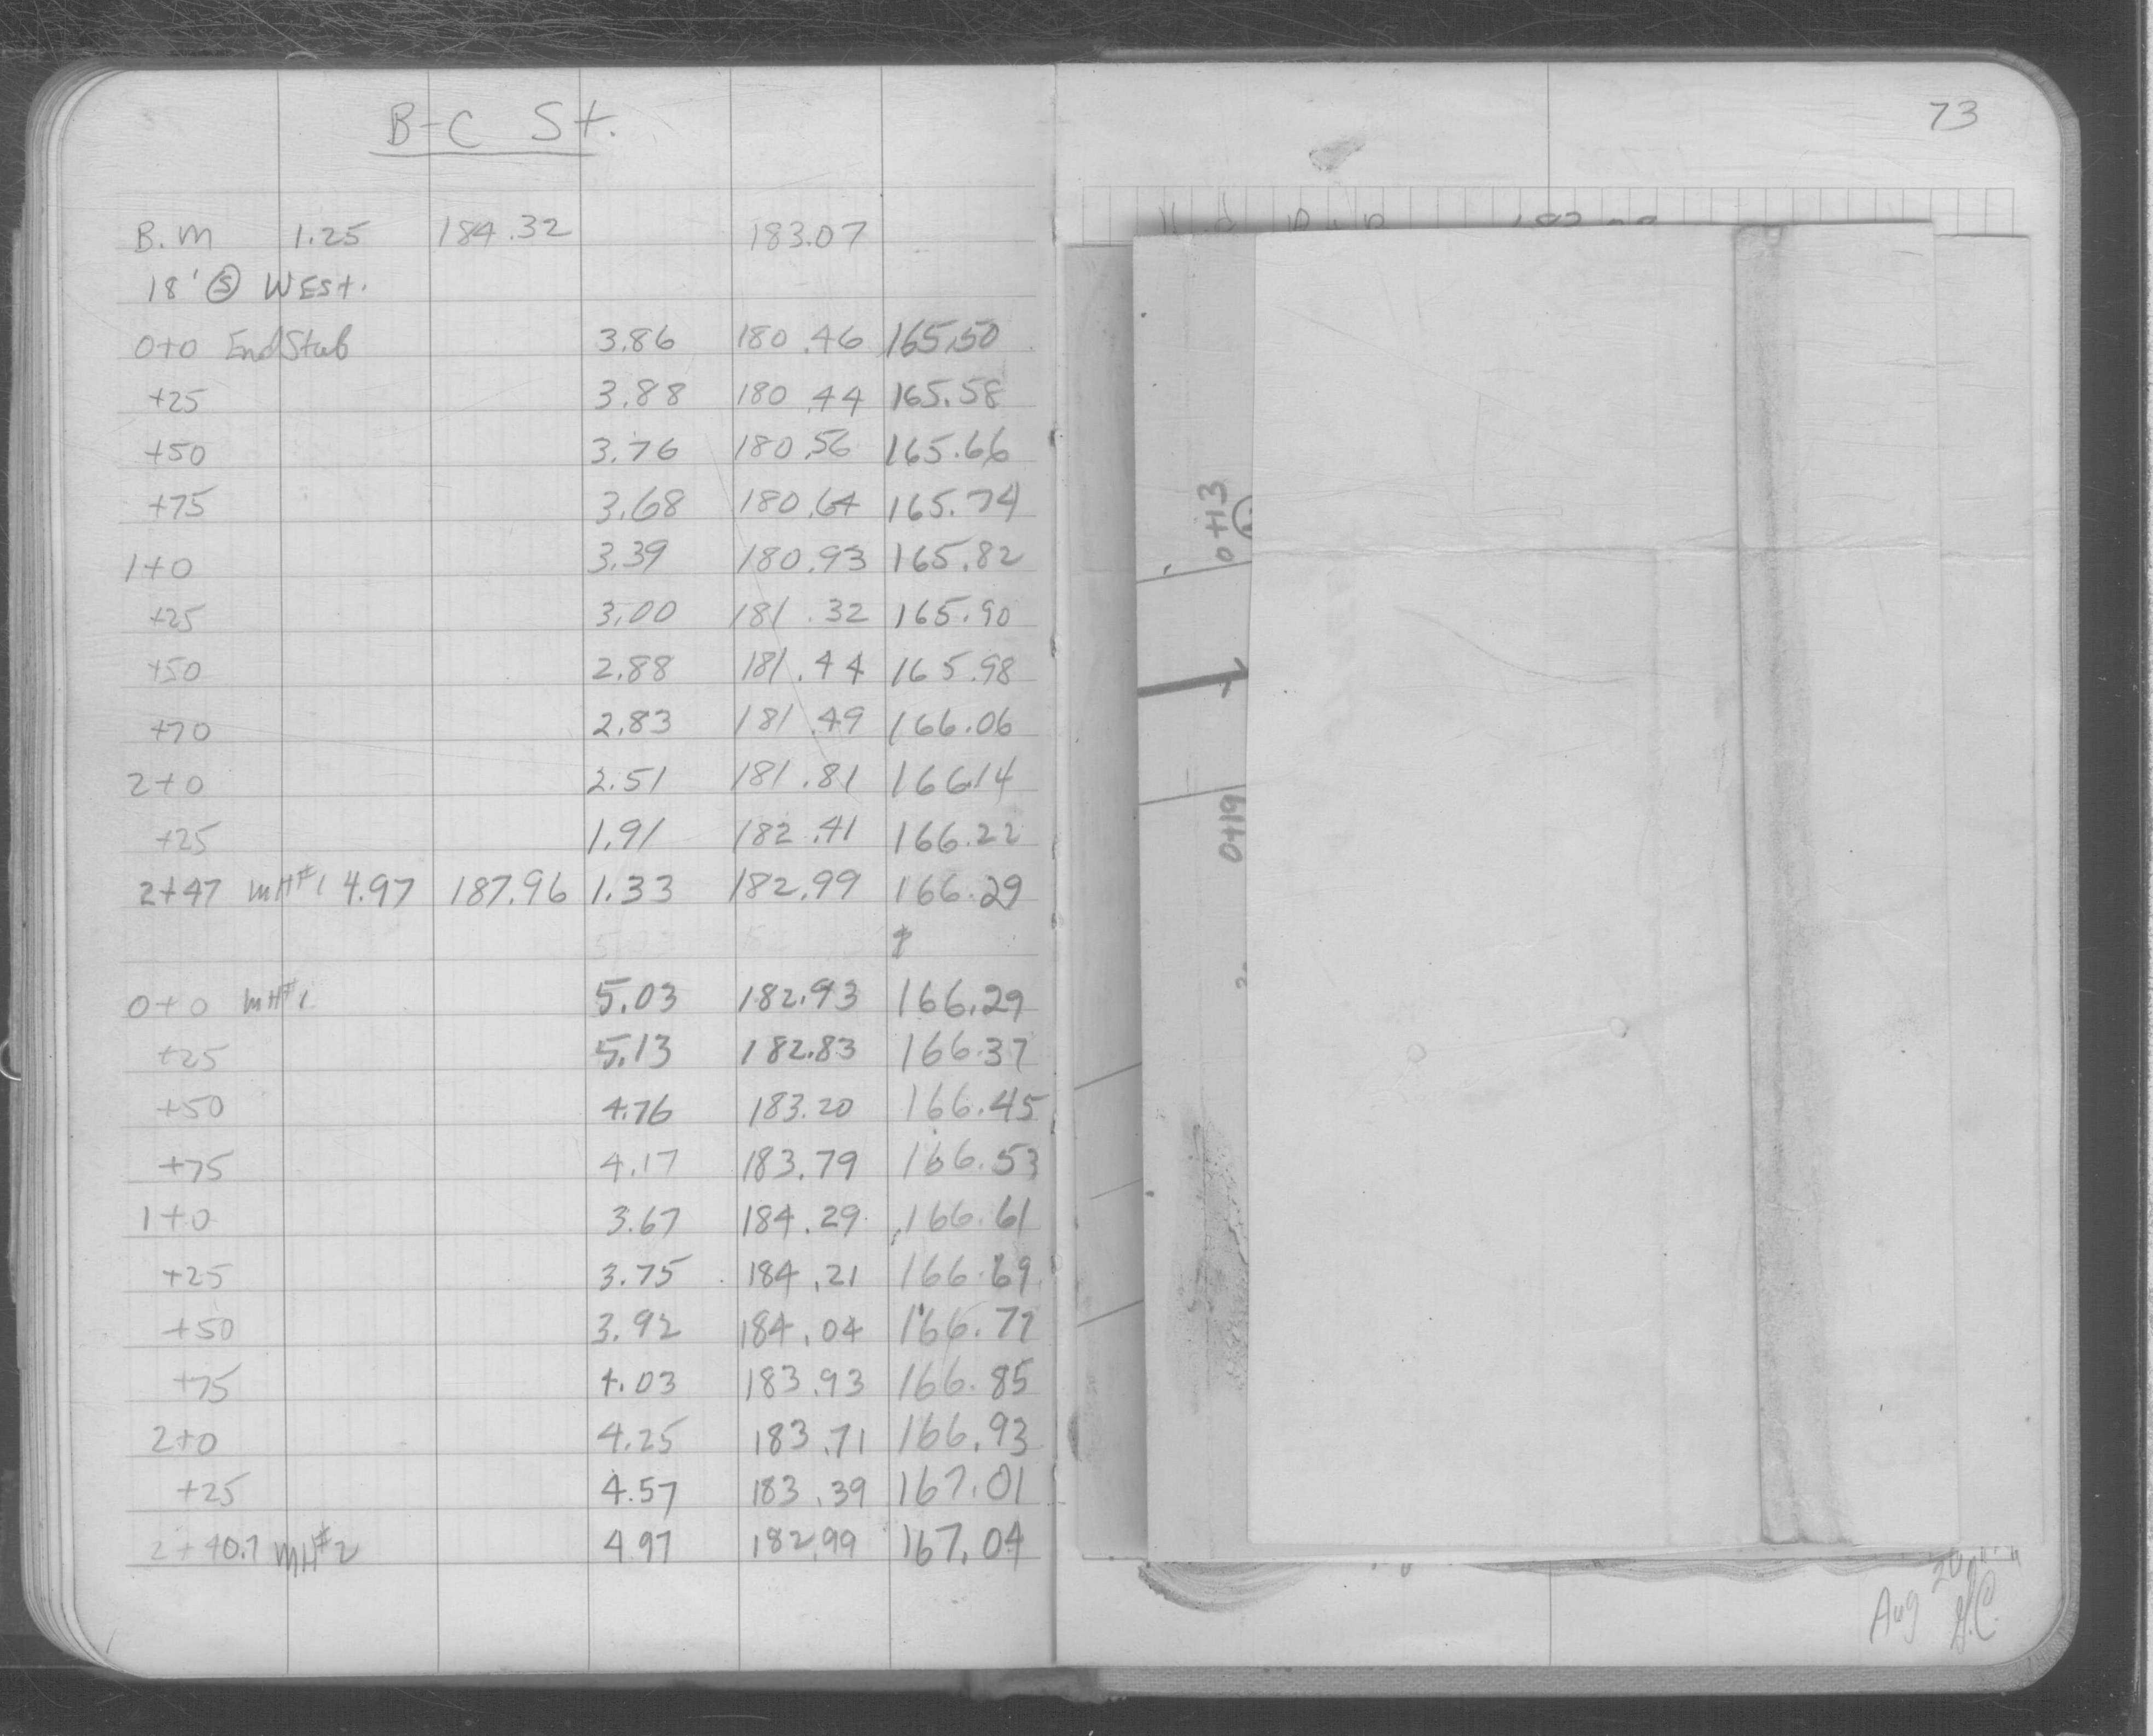 B-C St.
B.M 1.25 184.32 183.07
18' Ⓢ WEST.
0+0 End Stub 3.86 180.46 165.50
+25 3.88 180.44 165.58
+50 3.76 180.56 165.66
+75 3.68 180.64 165.74
1+0 3.39 180.93 165.82
+25 3.00 181.32 165.90
+50 2.88 181.44 165.98
+70 2.83 181.49 166.06
2+0 2.51 181.81 166.14
+25 1.91 182.41 166.22
2+47 MH#1 4.97 187.96 1.33 182.99 166.29
0+0 MH#1 5.03 182.93 166.29
+25 5.13 182.83 166.37
+50 4.76 183.20 166.45
+75 4.17 183.79 166.53
1+0 3.67 184.29 166.61
+25 3.75 184.21 166.69
+50 3.92 184.04 166.77
+75 4.03 183.93 166.85
2+0 4.25 183.71 166.93
+25 4.57 183.39 167.01
2+40.7 MH#2 4.97 182.99 167.04
73
0+13
0+19
Aug